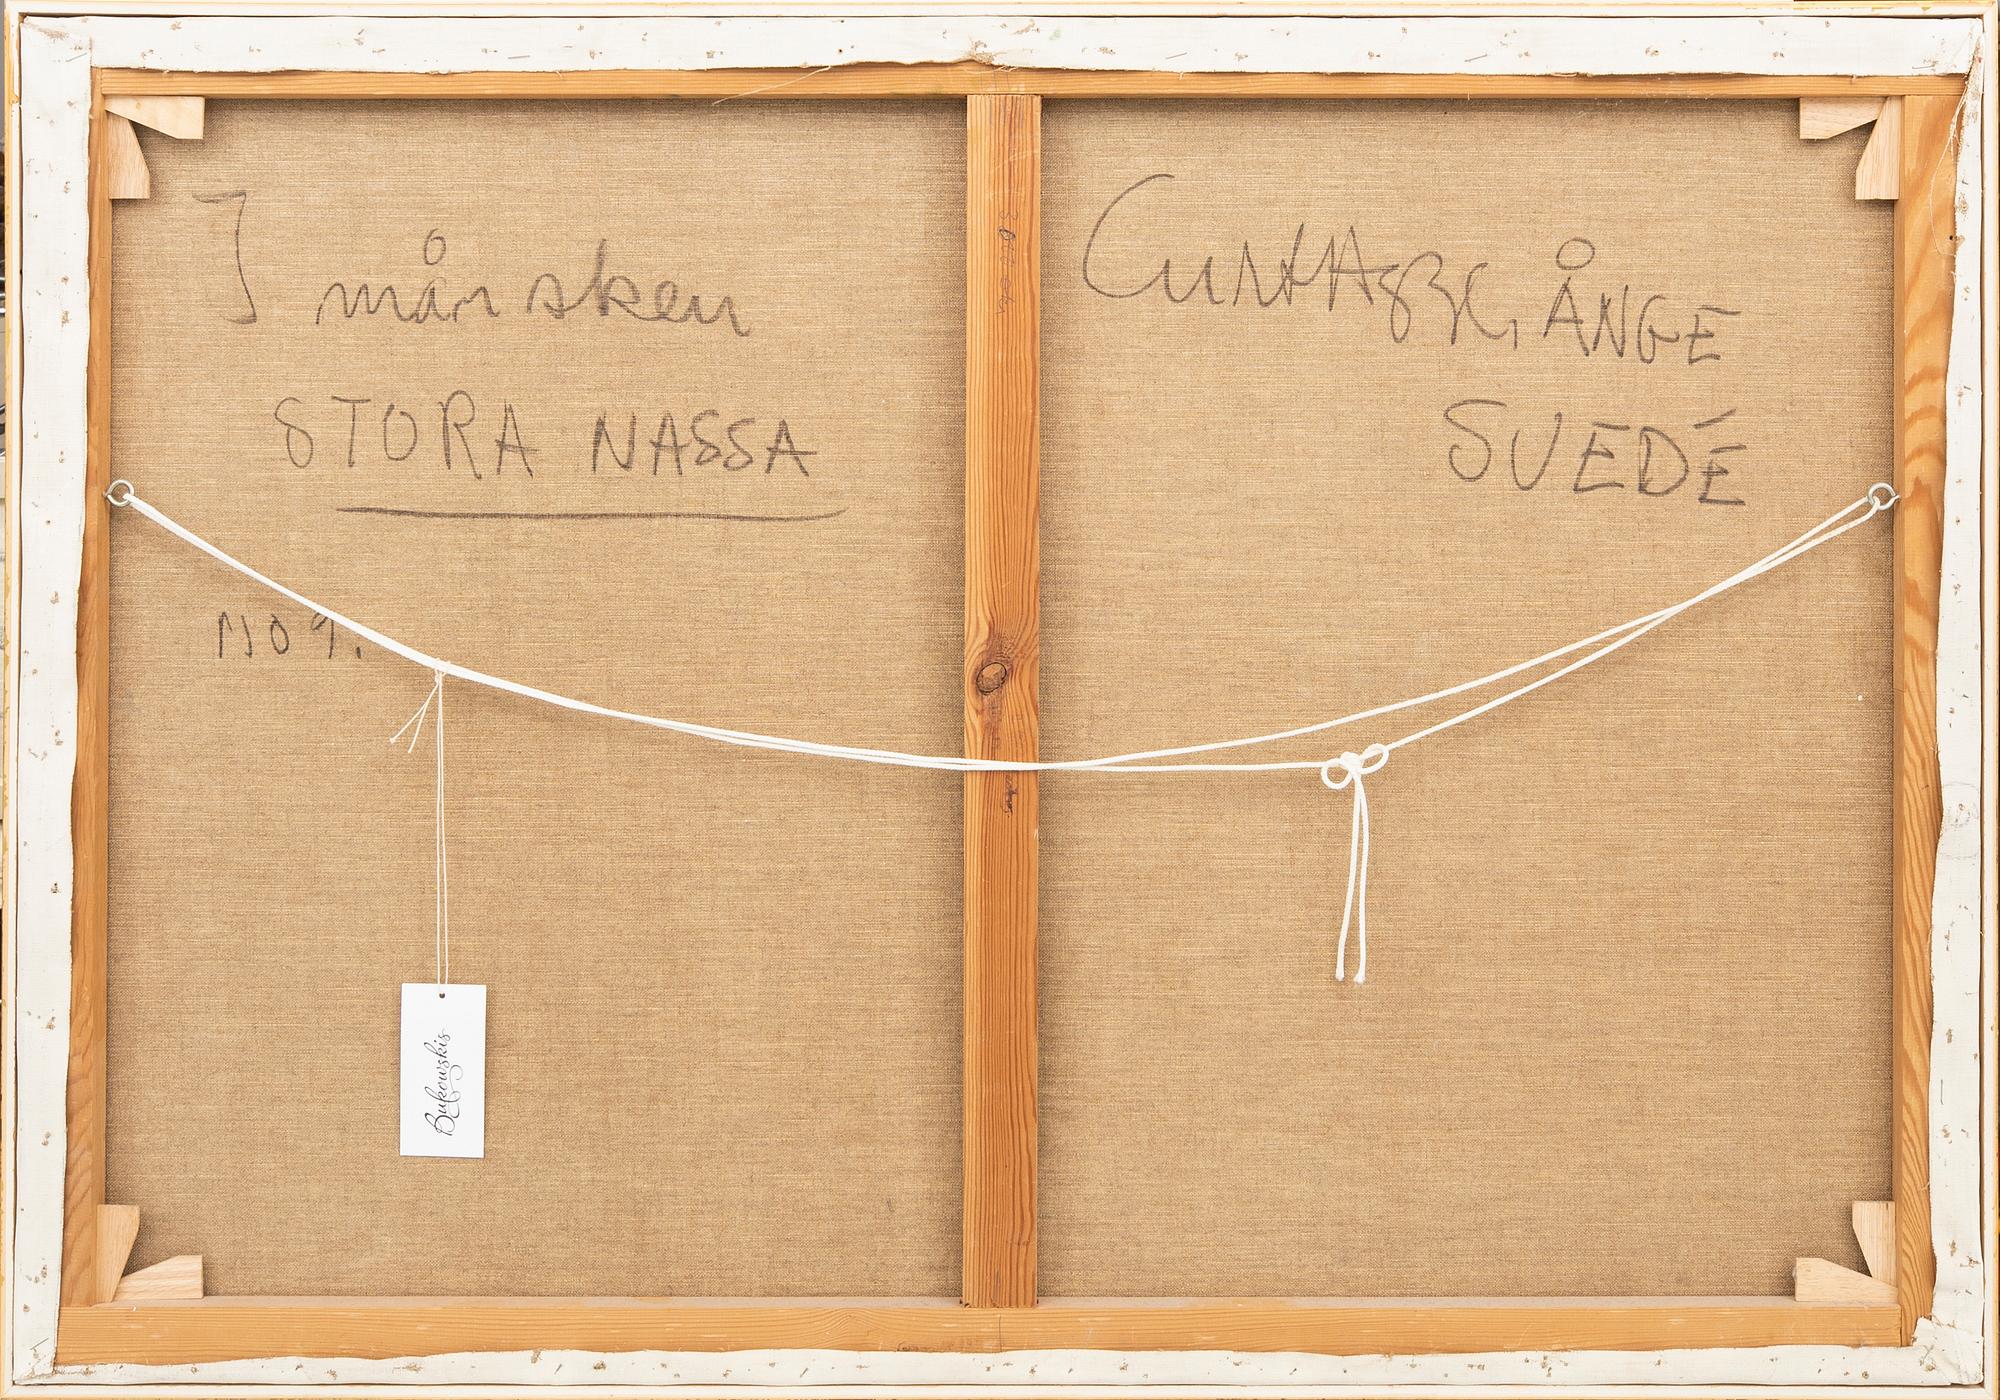 I månsken
STORA NASSA
NO 9.
Curt Agge, ÅNGE
SUEDÉ
Bukowskis